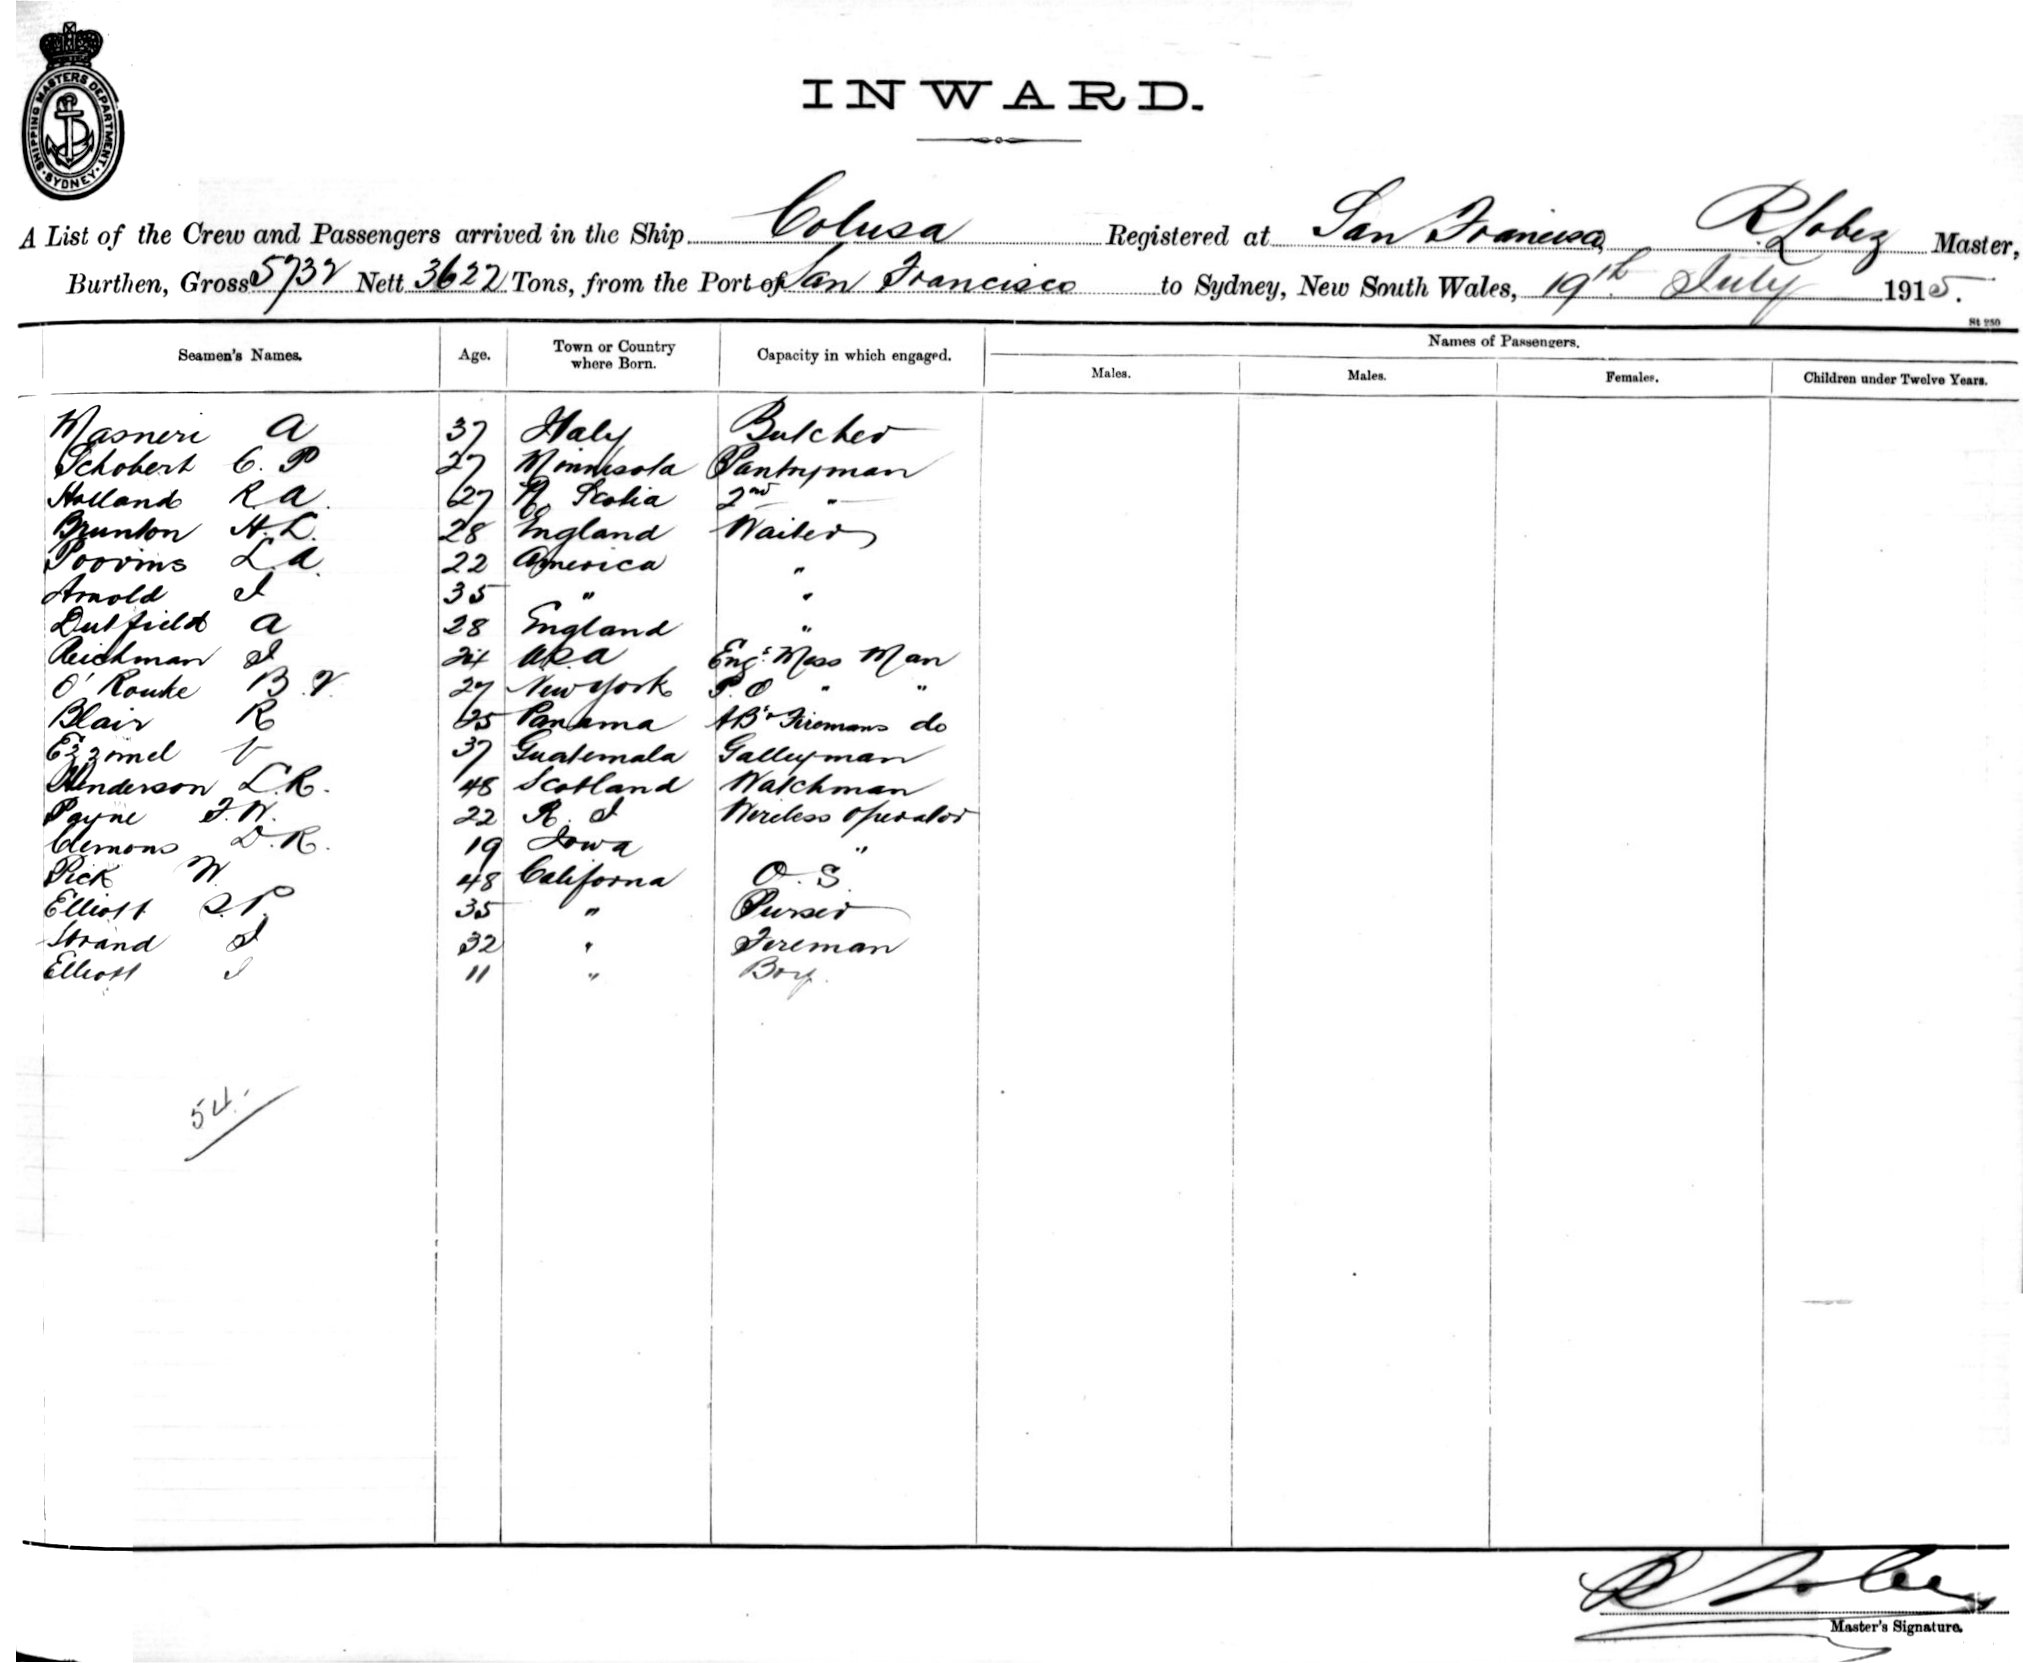 SHIPPING MASTERS DEPARTMENT. SYDNEY
INWARD.
A List of the Crew and Passengers arrived in the Ship Colusa Registered at San Francisco, R. Lobez Master,
Burthen, Gross 5732 Nett 3622 Tons, from the Port of San Francisco to Sydney, New South Wales, 19th July 1915.
St 250
Seamen's Names. Age. Town or Country where Born. Capacity in which engaged. Names of Passengers.
Males. Males. Females. Children under Twelve Years.
Masneri A 37 Italy Butcher
Schobert C. P 27 Minnisola Pantryman
Holland R A. 27 N Scotia 2nd "
Brunton H. L. 28 England Waiter
Poovins L. A. 22 America "
Arnold J 35 " "
Dutfield A 28 England "
Reichman J 24 Eng's Mess Man
O' Rouke B. V. 27 New York P. O " "
Blair R 25 Panama AB's Firemans do
Ezzomel V 37 Guatemala Galleyman
Henderson L. R. 48 Scotland Watchman
Payne F. W. 22 R. I Wireless operator
Clemons D. R. 19 Iowa "
Pick W. 48 Californa O. S.
Elliott S. P. 35 " Purser
Strand J 32 " Fireman
Elliott J 11 " Boy.
54.-
Master's Signature.